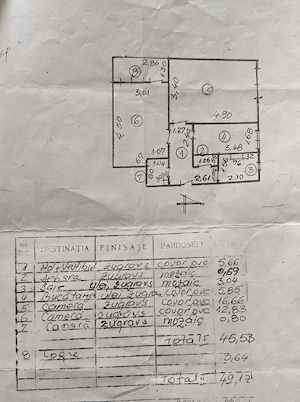 8
2,80
1,30
3,01
3,40
5
6
4,50
4,90
1,27
4
1,68
1,07
1
2
3,48
1,04
1,32
7
2,61
2,10
3
DESTINAȚIA FINISAJE PARDOSELI
1 Hol+Vestibul zugravs covor pvc 5,66
2 zugravs mozaic 0,69
3 Baie ulei, zugravs mozaic 3,04
4 Bucătarie ulei, zugrav covor pvc 5,85
5 Camera zugravs covor pvc 16,66
6 Camera zugravs covor pvc 12,83
7 Camară zugravs mozaic 0,80
Total I 45,53
8 Logie 3,64
Total II 49,17